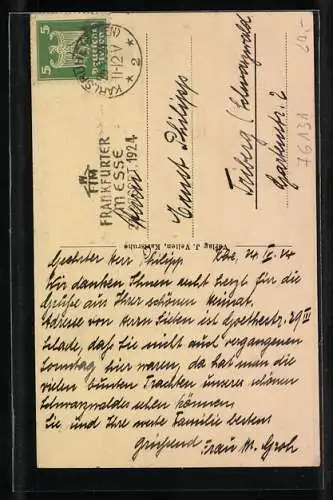 5 5
DEUTSCHES REICH
KARLSRUHE (BADEN)
11-12 V
* 2 *
FIM
FRANKFURTER
MESSE
1924
Herrn
Ernst Philipp
Triberg / Schwarzwald
Gartenstr. 2
Verlag J. Velten, Karlsruhe
76131
Geehrter Herr Philipp Khe, 24 IX 24
Wir danken Ihnen recht herzl. für die
Grüße aus Ihrer schönen Heimat.
Adresse von Herrn ist Goethestr. 29 III
Schade, daß Sie nicht am vergangenen
Sonntag hier waren, da hat man die
vielen bunten Trachten unseres schönen
Schwarzwaldes sehen können.
Sie, und Ihre werte Familie bestens
grüßend Frau M. Groh